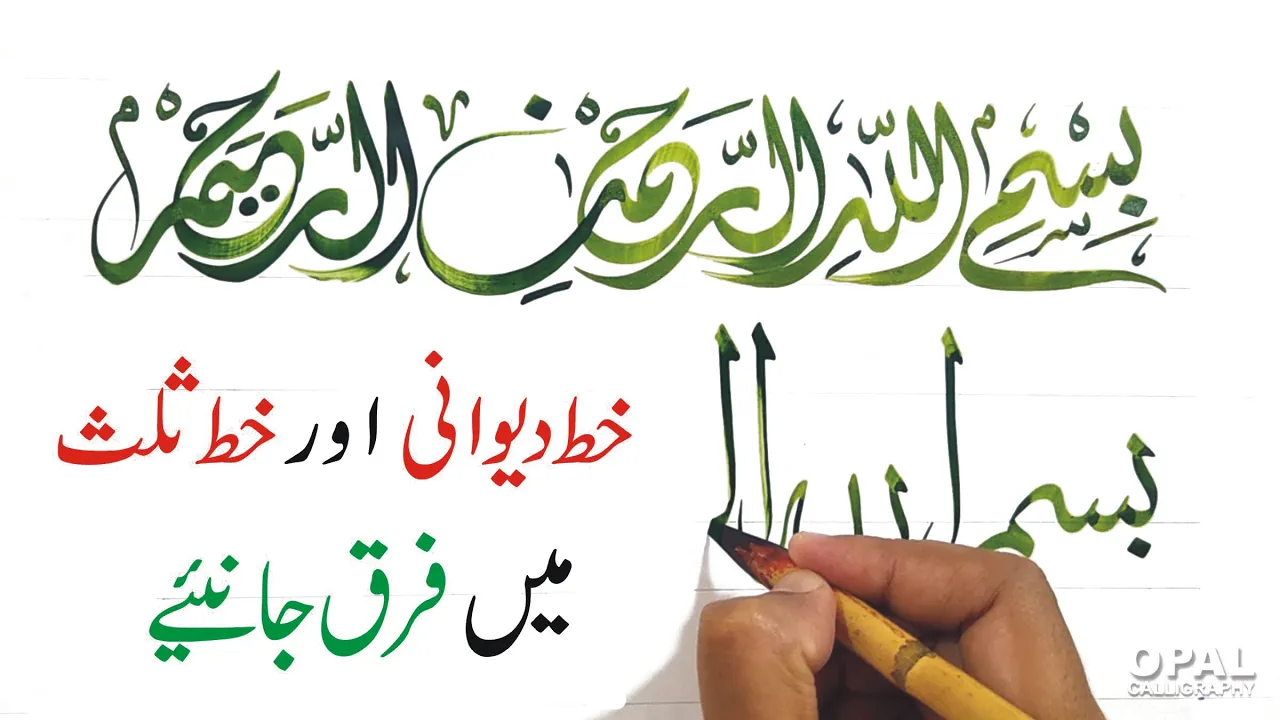 بِسْمِ اللّٰهِ الرَّحْمٰنِ الرَّحِيْمِ
بسم ال
خط دیوانی اور خط ثلث
میں فرق جانئیے
OPAL
CALLIGRAPHY